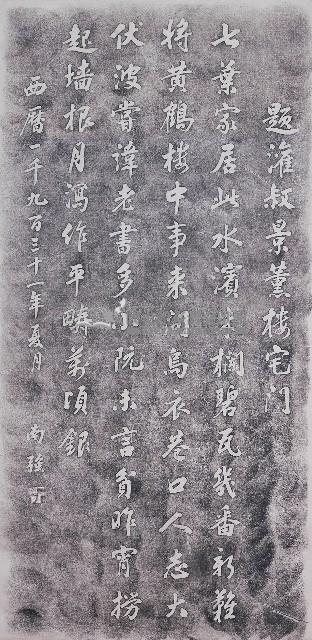 題灌叔景薰樓宅門
七葉家居此水濱朱欄碧瓦幾番新難
將黃鶴樓中事來問烏衣巷口人志大
伏波嘗諱老書多小阮未言貧昨宵撈
起墙根月瀉作平疇萬頃銀
西曆一千九百三十一年夏月 尚強